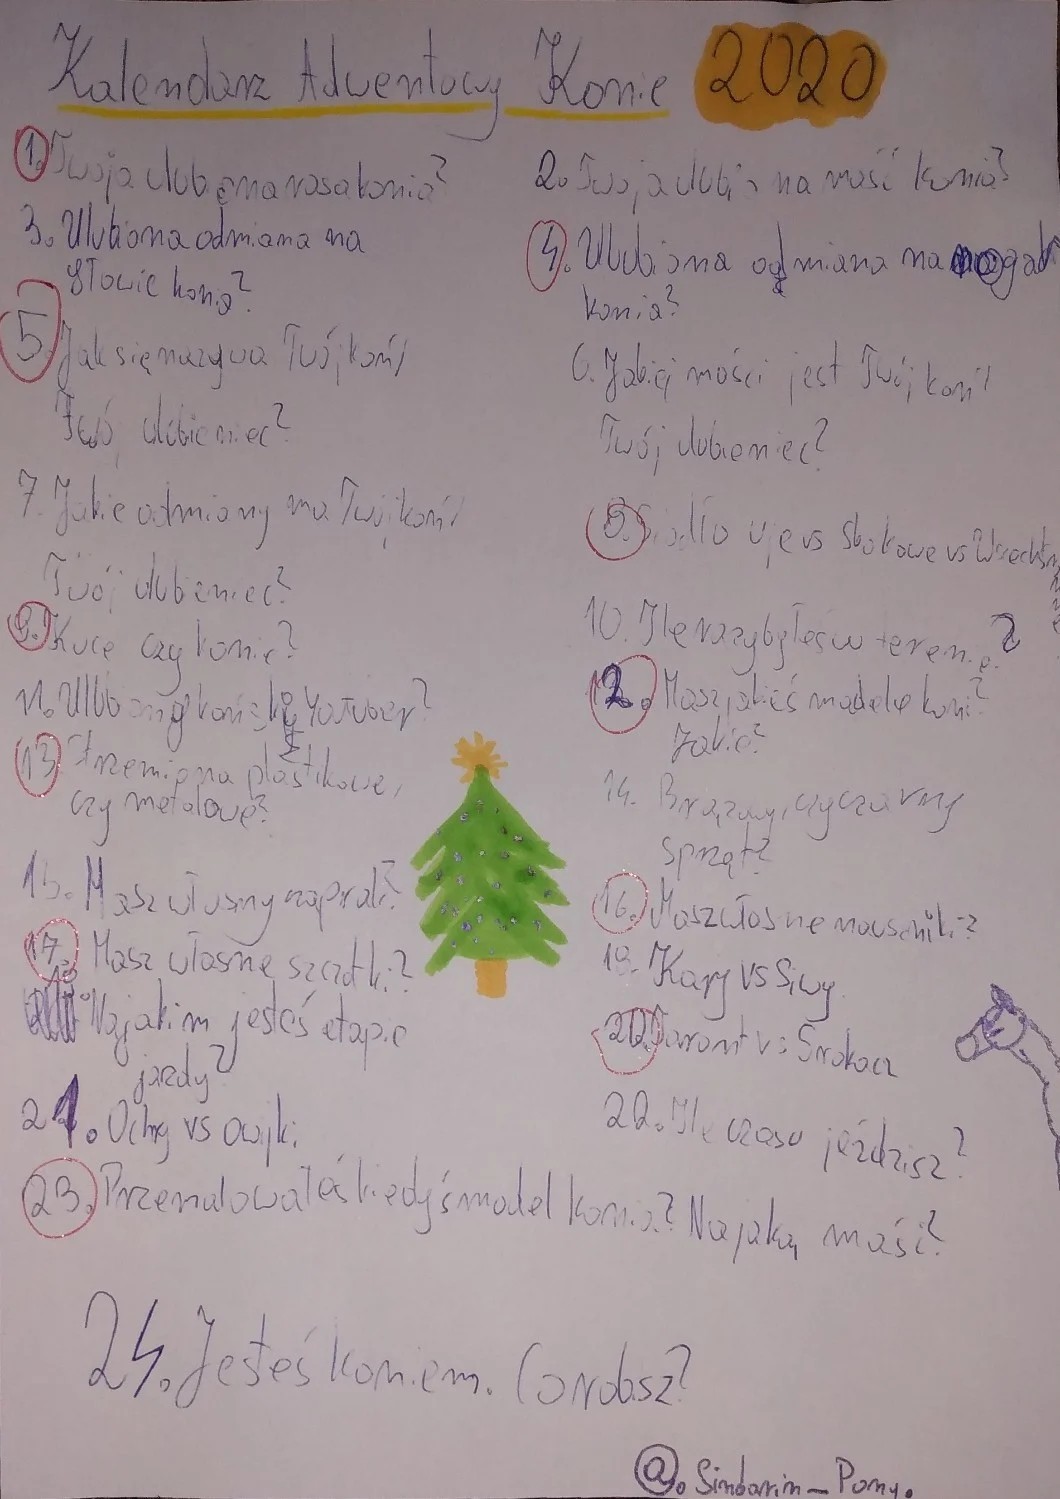 Kalendarz Adwentowy Konie 2020
1. Twoja ulubiona rasa konia?
2. Twoja ulub na maść konia?
3. Ulubiona odmiana na
głowie konia?
4. Ulubiona odmiana na nogach
konia?
5. Jak się nazywa Twój koń/
Twój ulubieniec?
6. Jakiej maści jest Twój koń/
Twój ulubieniec?
7. Jakie odmiany ma Twój koń/
Twój ulubieniec?
8. Siodło uje vs Skokowe vs Wszechstronne
9. Kuce czy konie?
10. Ile razy byłeś w terenie?
11. Ulubiony koński Yotuber?
12. Masz jakieś modele koni?
Jakie?
13. Strzemiona plastikowe,
czy metalowe?
14. Brązowy, czy czarny
sprzęt?
15. Masz własny czaprak?
16. Masz własne nauszniki?
17. Masz własne szczotki?
18. Kary vs Siwy
19. Na jakim jesteś etapie
jazdy?
20. Tarant vs Srokacz
21. Ochy vs owijki
22. Ile czasu jeździsz?
23. Przemalowałeś kiedyś model konia? Na jaką maść?
24. Jesteś koniem. Co robisz?
@. Sindarin_Pony.